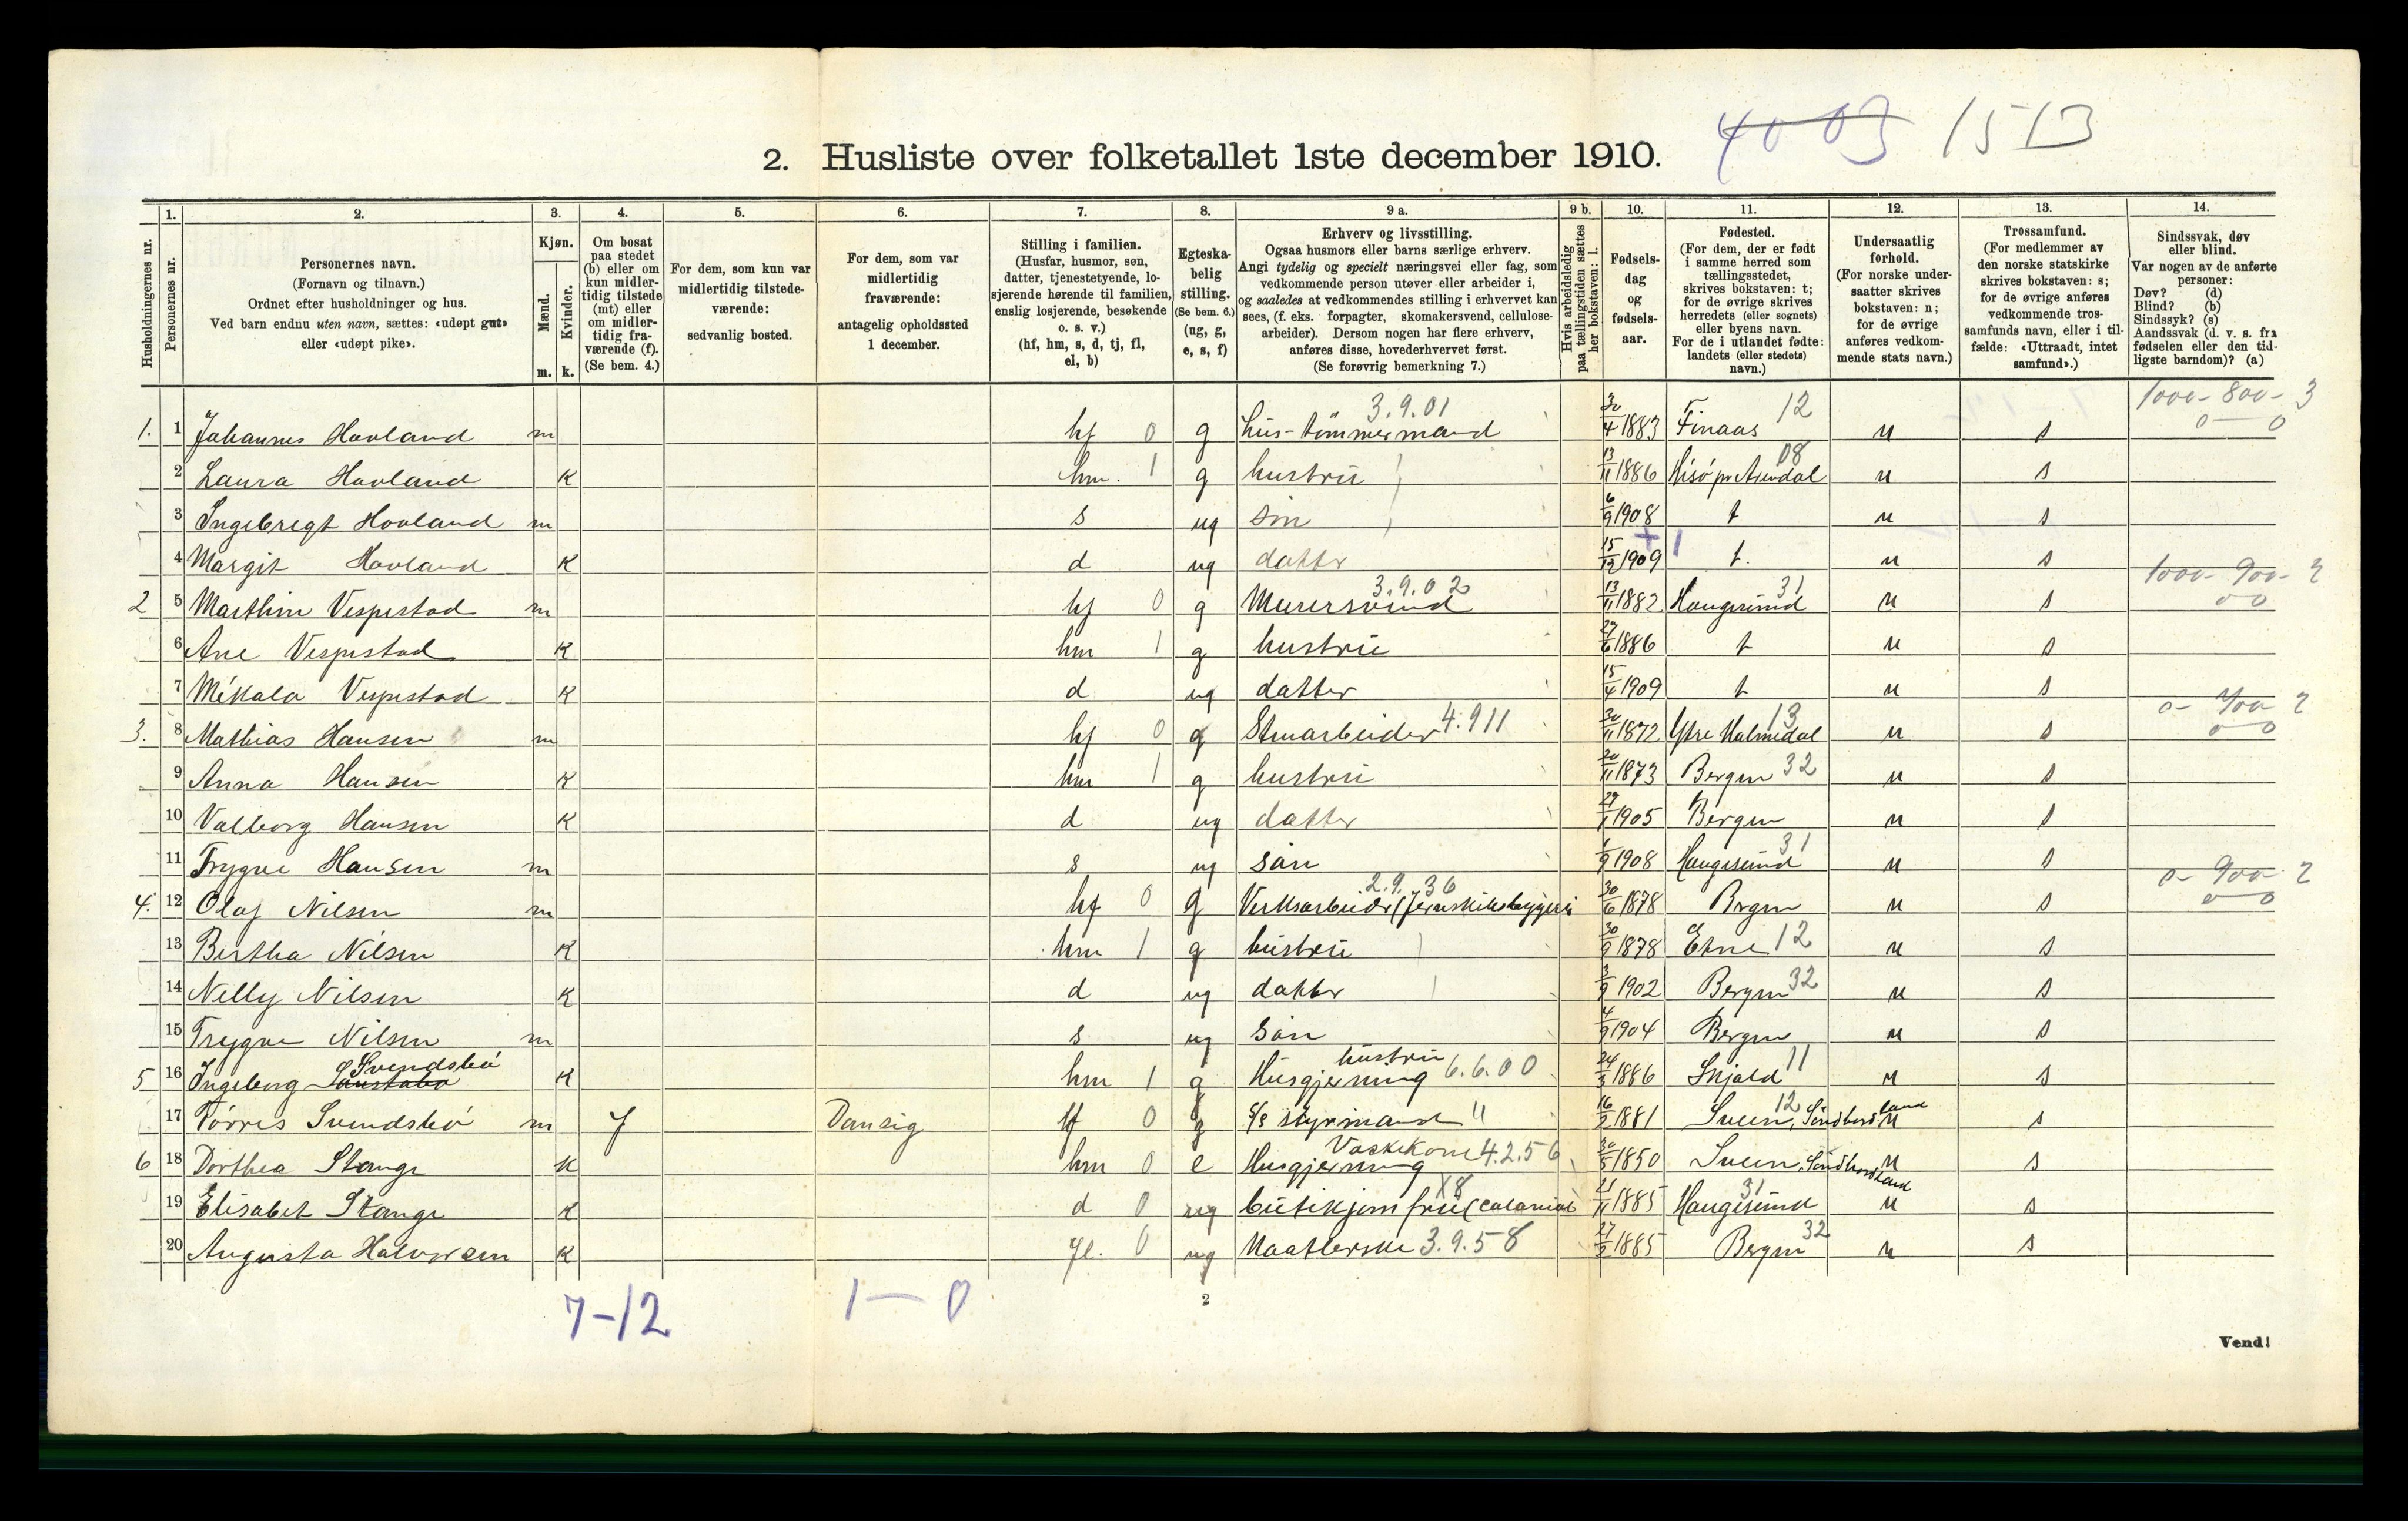 4003 1513
2. Husliste over folketallet 1ste december 1910.
1. 2. 3. 4. 5. 6. 7. 8. 9 a. 9 b. 10. 11. 12. 13. 14.
Husholdningernes nr.
Personernes nr.
Personernes navn.
(Fornavn og tilnavn.)
Ordnet efter husholdninger og hus.
Ved barn endnu uten navn, sættes: «udøpt gut»
eller «udøpt pike».
Kjøn.
Mænd.
Kvinder.
m. k.
Om bosat
paa stedet
(b) eller om
kun midler-
tidig tilstede
(mt) eller
om midler-
tidig fra-
værende (f).
(Se bem. 4.)
For dem, som kun var
midlertidig tilstede-
værende:
sedvanlig bosted.
For dem, som var
midlertidig
fraværende:
antagelig opholdssted
1 december.
Stilling i familien.
(Husfar, husmor, søn,
datter, tjenestetyende, lo-
sjerende hørende til familien,
enslig losjerende, besøkende
o. s. v.)
(hf, hm, s, d, tj, fl,
el, b)
Egteska-
belig
stilling.
(Se bem. 6.)
(ug, g,
e, s, f)
Erhverv og livsstilling.
Ogsaa husmors eller barns særlige erhverv.
Angi tydelig og specielt næringsvei eller fag, som
vedkommende person utøver eller arbeider i,
og saaledes at vedkommendes stilling i erhvervet kan
sees, (f. eks. forpagter, skomakersvend, cellulose-
arbeider). Dersom nogen har flere erhverv,
anføres disse, hovederhvervet først.
(Se forøvrig bemerkning 7.)
Hvis arbeidsledig
paa tællingstiden sættes
her bokstaven: l.
Fødsels-
dag
og
fødsels-
aar.
Fødested.
(For dem, der er født
i samme herred som
tællingsstedet,
skrives bokstaven: t;
for de øvrige skrives
herredets (eller sognets)
eller byens navn.
For de i utlandet fødte:
landets (eller stedets)
navn.)
Undersaatlig
forhold.
(For norske under-
saatter skrives
bokstaven: n;
for de øvrige
anføres vedkom-
mende stats navn.)
Trossamfund.
(For medlemmer av
den norske statskirke
skrives bokstaven: s;
for de øvrige anføres
vedkommende tros-
samfunds navn, eller i til-
fælde: «Uttraadt, intet
samfund».)
Sindssvak, døv
eller blind.
Var nogen av de anførte
personer:
Døv? (d)
Blind? (b)
Sindssyk? (s)
Aandssvak (d. v. s. fra
fødselen eller den tid-
ligste barndom)? (a)
3.9.01 12 1000- 800- 3
1. 1 Johannes Hovland m hf 0 g hus-tømmermand 30/4 1883 Finaas n s 0 — 0
08
2 Laura Hovland K hm. 1 g hustru 13/11 1886 Hisö pr Arendal n s
3 Ingebregt Hovland m s ug sön 6/9 1908 t n s
4 Margit Hovland K d ug datter 15/12 1909 + 1 t. n s
3.9.02 31 1000- 900- 2
2 5 Marthin Vespestad m hf 0 g Murersvend 13/11 1882 Haugesund n s 0 0
6 Ane Vespestad K hm 1 g hustru 27/6 1886 t n s
7 Mikala Vespestad K d ug datter 15/4 1909 t n s
13 0- 700- 2
3. 8 Mathias Hansen m hf 0 g Stuarbeider 4.911 30/11 1872 Ytre Holmedal n s 0 0
9 Anna Hansen K hm 1 g hustru 20/11 1873 Bergen 32 n s
10 Valborg Hansen K d ug datter 29/1 1905 Bergen n s
31
11 Trygve Hansen m s ug sön 1/9 1908 Haugesund n s
2.9.36 0- 900- 2
4. 12 Olaf Nilsen m hf 0 g Verksarbeider (Jernskibsbyggeri 30/6 1878 Bergen n s 0 0
13 Bertha Nilsen K hm 1 g hustru 30/9 1878 Etne 12 n s
14 Nelly Nilsen K d ug datter 3/9 1902 Bergen 32 n s
15 Trygve Nilsen m s ug sön 4/9 1904 Bergen n s
Svendsbö hustru
5 16 Ingeborg K hm 1 g Husgjerning 6.6.00 24/3 1886 Skjold 11 n s
17 Törres Svendsbö m f Dansig hf 0 g s/s styrmand " 16/2 1881 Sveen, Söndhordland 12 n s
Vaskekone 4.2.56
6 18 Dorthea Stange K hm 0 e Husgjerning 30/5 1850 Sveen, Söndhordland n s
X8 31
19 Elisabet Stange K d 0 ug butikjomfru (colonial 21/11 1885 Haugesund n s
20 Augusta Halvorsen K fl. 0 ug Maatlerske 3.9.58 27/2 1885 Bergen 32 n s
7-12 1 — 0
2
Vend!